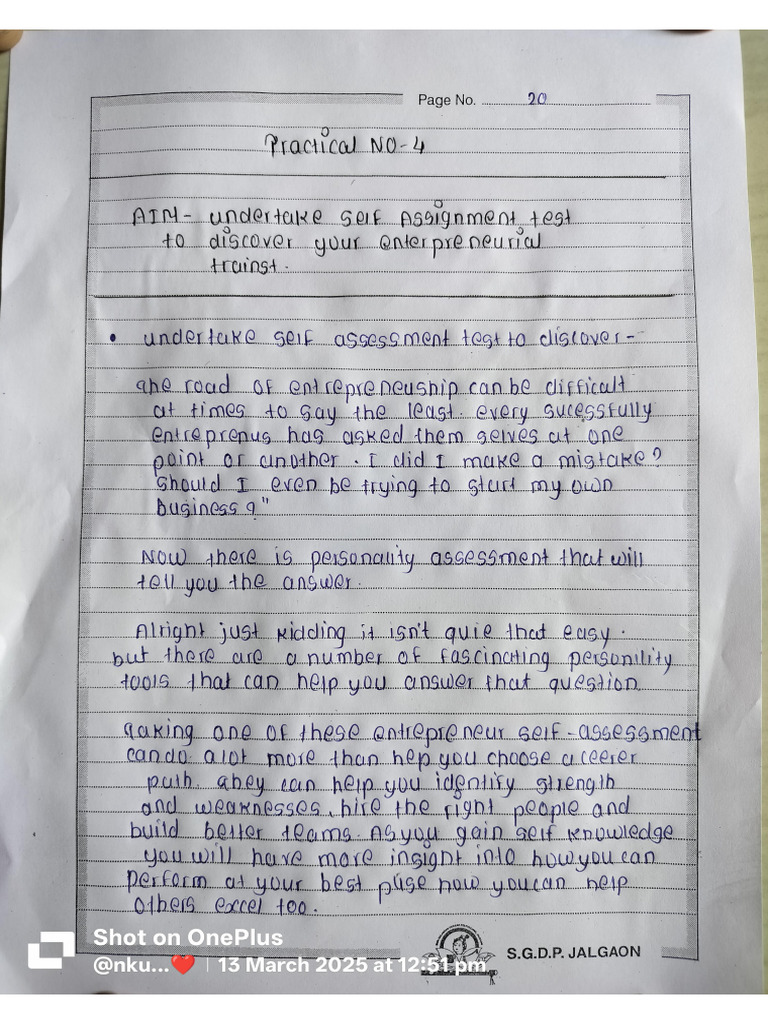 Page No. 20
Practical NO-4
AIM- undertake self Assignment test
to discover your enterpreneurial
trainst.
• undertake self assessment test to discover-
The road of entrepreneuship can be difficult
at times to say the least. every sucessfully
entreprenus has asked them selves at one
point or another. I did I make a mistake?
Should I even be trying to start my own
business?"
Now there is personality assessment that will
tell you the answer.
Alright just kidding it isn't quie that easy.
but there are a number of fascincting personility
tools that can help you answer that question
Taking one of these entrepreneur self-assessment
cando alot more than hep you choose a ceerer
path. They can help you identify strength
and weaknesses, hire the right people and
build better teams. As you gain self knowledge
you will have more insight into how you can
perform at your best pluse how youcan help
others excel too.
S.G.D.P. JALGAON
Shot on OnePlus
@nku...❤️ | 13 March 2025 at 12:51 pm